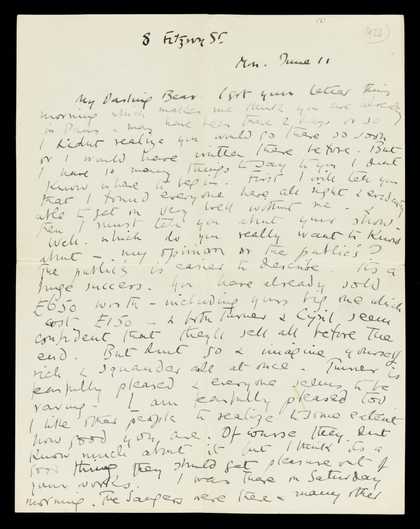 [1928]
8 Fitzroy St.
Mon. June 11
My Darling Bear. I got your letter this
morning which makes me think you are already
in Paris & may have been there 2 days or so
I didnt realize you would go there so soon
or I would have written there before. But
I have so many things to say to you I dont
know where to begin. First I will tell you
that I found everyone here all right & evidently
able to get on very well without me.
then I must tell you about your show -
well. which do you really want to know
about - my opinion or the public's?
The public's is easier to describe its a
huge success. You have already sold
£650 worth - including yours big one which
cost £150 - & both Turner & Cyril seem
confident that they'll sell all before the
end. But dont go & imagine yourself
rich & squander all at once. Turner is
fearfully pleased & everyone seems to be
raving. I am fearfully pleased too
I like other people to realize to some extent
how good you are. Of course they dont
know much about it but I think its a
good thing they should get pleasure out of
your works. I was there on Saturday
morning. The Sangers were there & many other